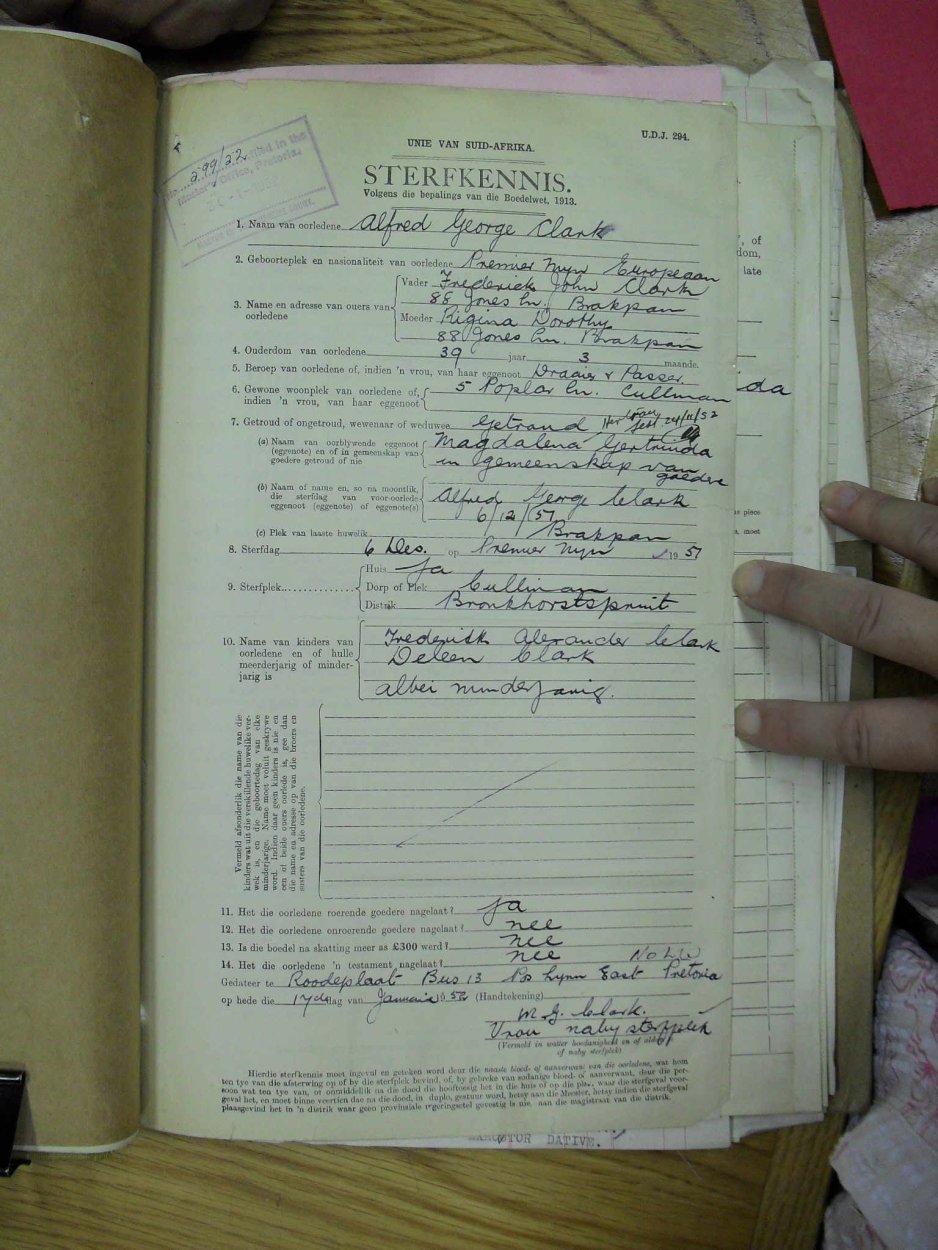 U.D.J. 294.
UNIE VAN SUID-AFRIKA.
STERFKENNIS.
Volgens die bepalings van die Boedelwet, 1913.
No. 299/22 filed in the
Master's Office, Pretoria.
1. Naam van oorledene Alfred George Clark
2. Geboorteplek en nasionaliteit van oorledene Premier Myn Europeaan
3. Name en adresse van ouers van oorledene
Vader Frederick John Clark
88 Jones Ln. Brakpan
Moeder Rigina Dorothy
88 Jones Ln. Brakpan
4. Ouderdom van oorledene 39 jaar 3 maande.
5. Beroep van oorledene of, indien 'n vrou, van haar eggenoot Draaier & Passer.
6. Gewone woonplek van oorledene of, 5 Poplar Ln. Cullinan
indien 'n vrou, van haar eggenoot
7. Getroud of ongetroud, wewenaar of weduwee Getroud 24/11/52
(a) Naam van oorblywende eggenoot Magdalena Gertruida
(eggenote) en of in gemeenskap van
goedere getroud of nie in gemeenskap van
goedere
(b) Naam of name en, so na moontlik,
die sterfdag van voor-oorlede Alfred George Clark
eggenoot (eggenote) of eggenote(s) 6/12/51
(c) Plek van laaste huwelik Brakpan
8. Sterfdag 6 Des. op Premier Myn 1951
9. Sterfplek
Huis Ja
Dorp of Plek Cullinan
Distrik Bronkhorstspruit
10. Name van kinders van
oorledene en of hulle
meerderjarig of minder-
jarig is
Frederick Alexander Clark
Deleen Clark
albei minderjarig.
Vermeld afsonderlik die name van die
kinders wat uit die verskillende huwelike ver-
wek is, en die geboortedag van elke
minderjarige. Name moet voluit geskrywe
word. Indien daar geen kinders is nie en
een of beide ouers oorlede is, gee dan
die name en adresse op van die broers en
susters van die oorledene.
11. Het die oorledene roerende goedere nagelaat? Ja
12. Het die oorledene onroerende goedere nagelaat? nee
13. Is die boedel na skatting meer as £300 werd? nee
14. Het die oorledene 'n testament nagelaat? nee
Gedateer te Roodeplaat Bus 13 Po Lynn East Pretoria
op hede die 17de dag van Januarie 1952 (Handtekening)
M. G. Clark.
Vrou naby sterfplek
(Vermeld in watter hoedanigheid en of aldaar
of naby sterfplek)
Hierdie sterfkennis moet ingevul en geteken word deur die naaste bloed- of aanverwant van die oorledene, wat hom
ten tye van die afsterwing op of by die sterfplek bevind, of, by gebreke van sodanige bloed- of aanverwant, deur die per-
soon wat ten tye van, of onmiddellik na die dood die hooftoesig het in die huis of op die plek, waar die sterfgeval voor-
geval het, en moet binne veertien dae na die dood, in duplo, gestuur word, hetsy aan die Meester, hetsy indien die sterfgeval
plaasgevind het in 'n distrik waar geen provinsiale regeringsetel gevestig is nie, aan die magistraat van die distrik.
DATIVE.
of
dom,
late
da
piece
moet